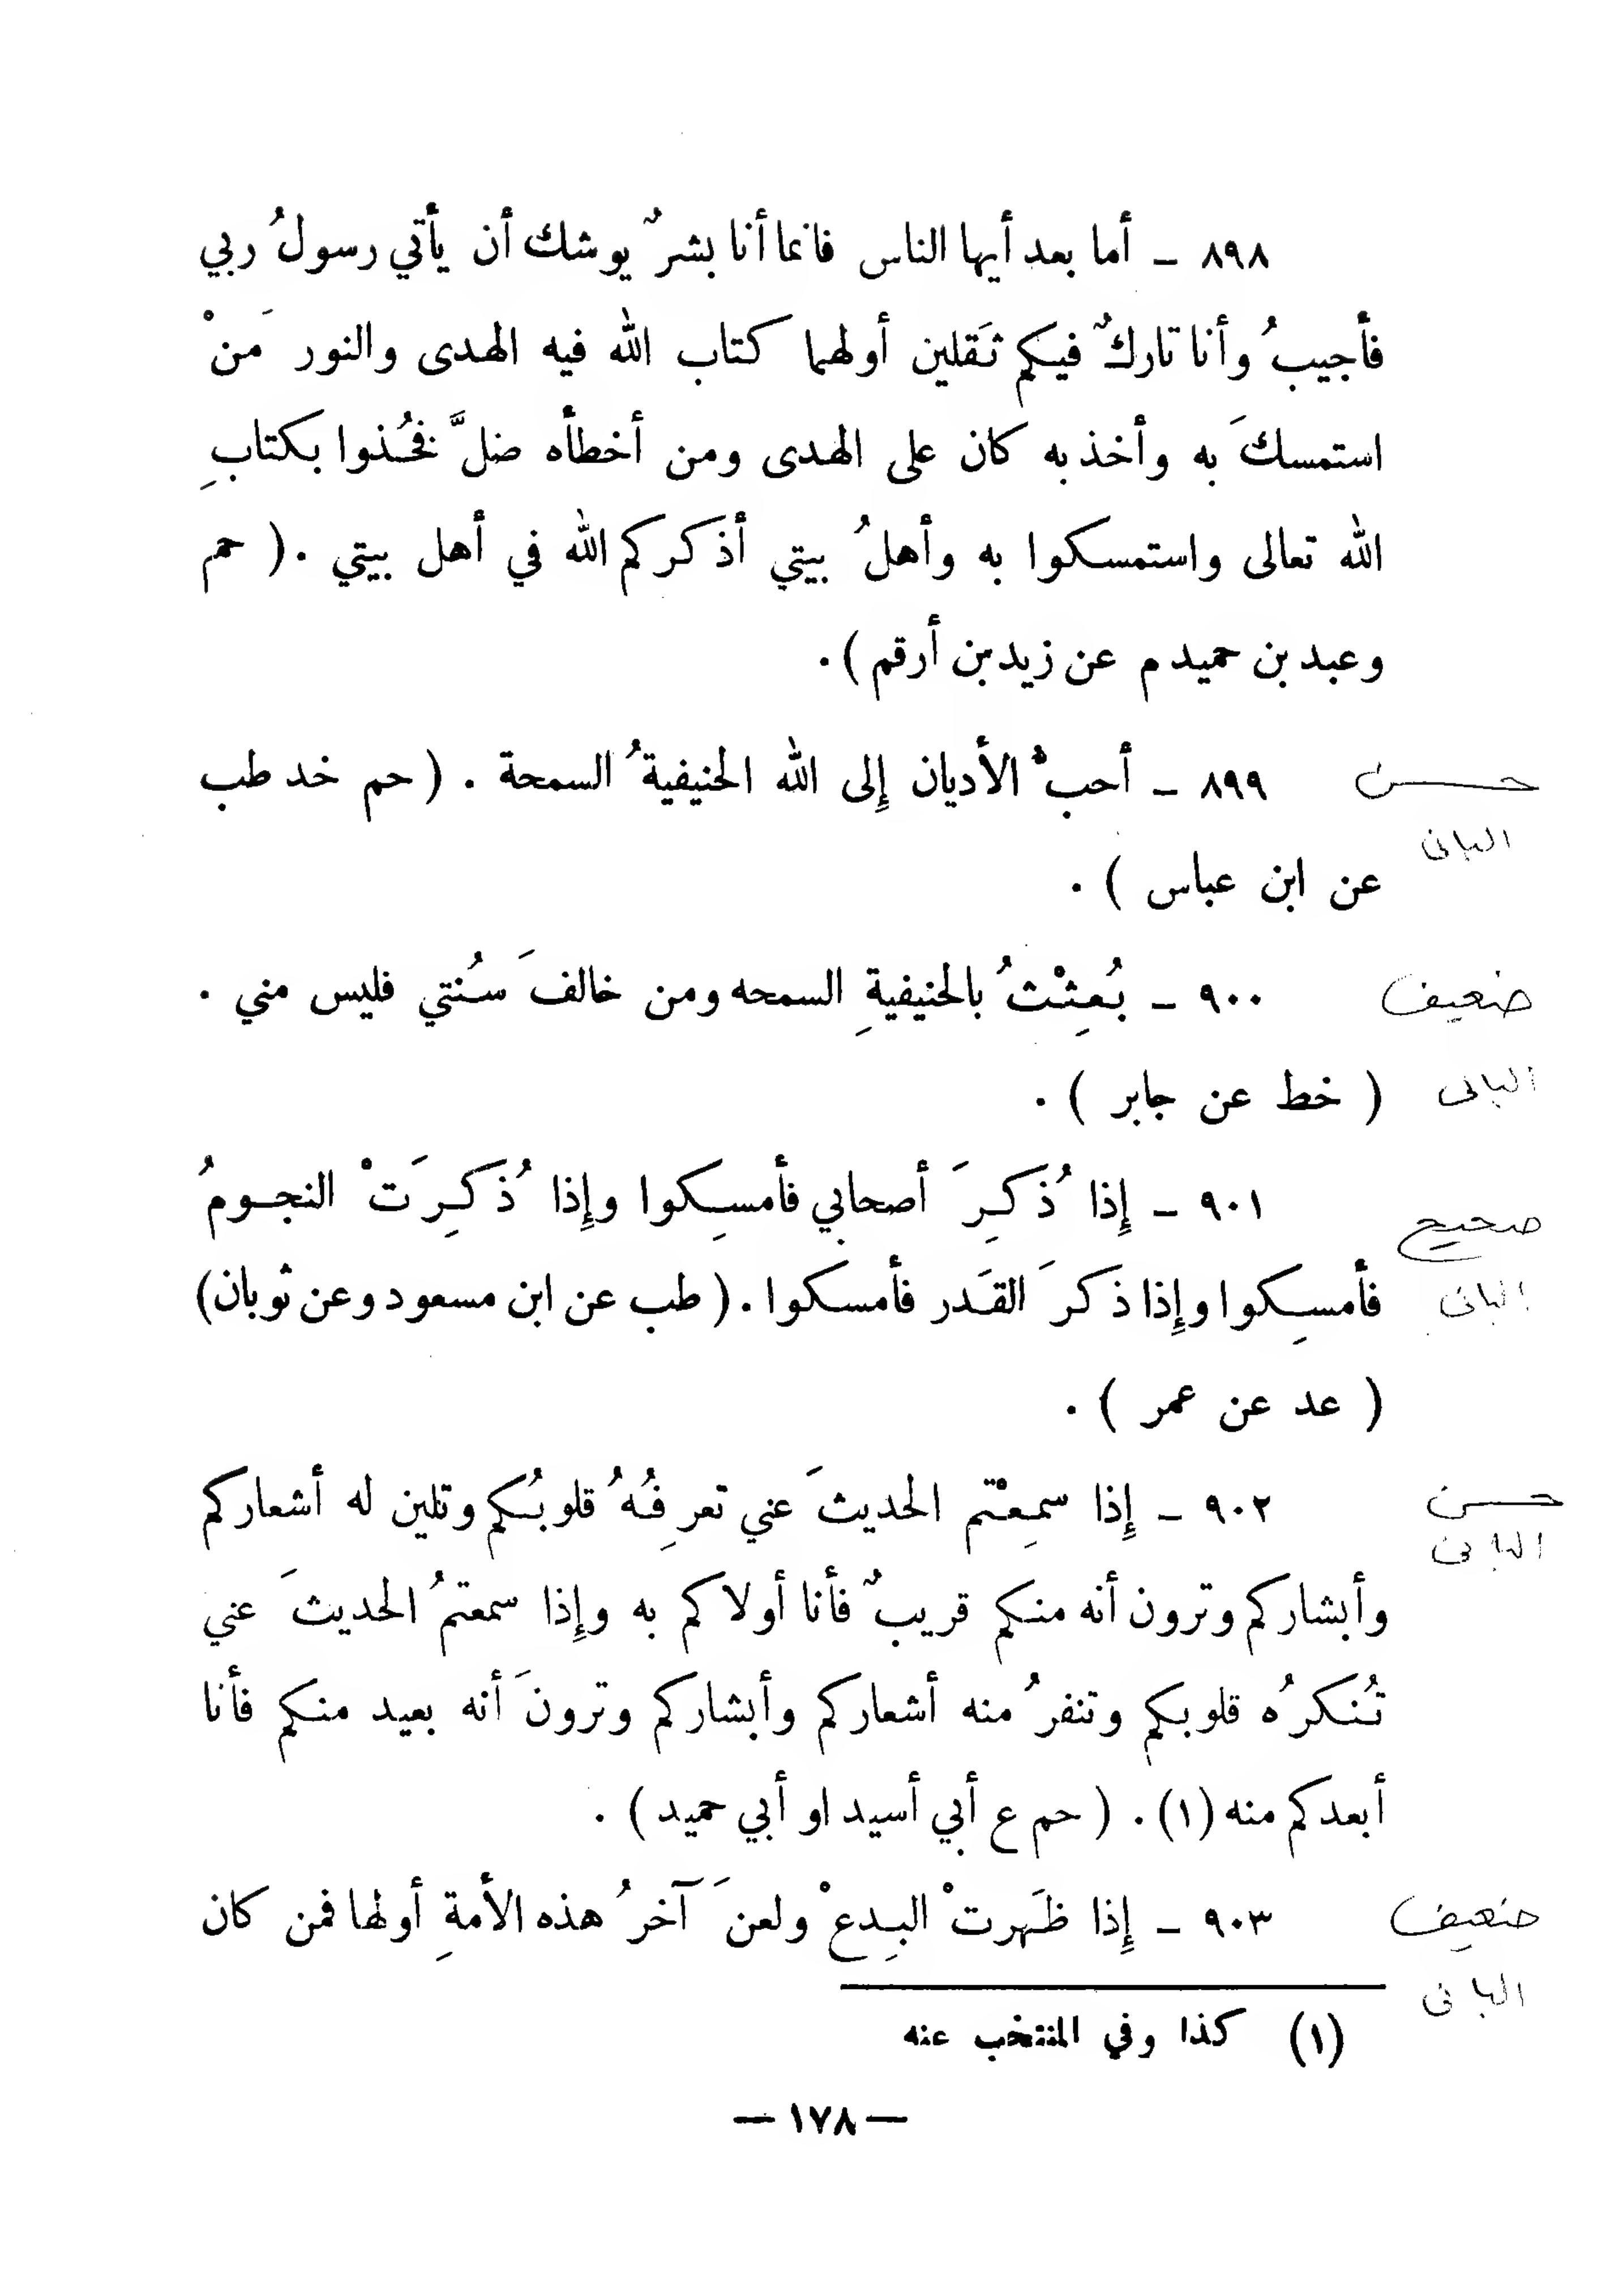 ٨٩٨ - أما بعد أيها الناس فانما أنا بشرٌ يوشك أن يأتي رسولُ ربي
فأجيبُ وأنا تاركٌ فيكم ثَقلين أولهما كتاب الله فيه الهدى والنور مَنْ
استمسكَ به وأخذ به كان على الهدى ومن أخطأه ضلَّ فخُذوا بكتابِ
الله تعالى واستمسكوا به وأهلُ بيتي أذكركم الله في أهل بيتي . ( حم
وعبد بن حميد م عن زيد بن أرقم ) .
حسن ٨٩٩ - أحبُّ الأديان إِلى الله الحنيفيةُ السمحة . ( حم خد طب
البانى
عن ابن عباس ) .
ضعيف ٩٠٠ - بُعِثْتُ بالحنيفيةِ السمحه ومن خالفَ سُنتي فليس مني .
البانى ( خط عن جابر ) .
صحيح ٩٠١ - إِذا ذُكِرَ أصحابي فأمسِكوا وإِذا ذُكِرَتْ النجومُ
البانى فأمسِكوا وإِذا ذكرَ القَدر فأمسكوا . ( طب عن ابن مسعود وعن ثوبان )
( عد عن عمر ) .
حسن ٩٠٢ - إِذا سمِعْتم الحديثَ عني تعرِفُهُ قلوبُكم وتلين له أشعاركم
البانى
وأبشاركم وترون أنه منكم قريبٌ فأنا أولاكم به وإِذا سمعتمُ الحديثَ عني
تُنكرُه قلوبكم وتنفرُ منه أشعاركم وأبشاركم وترونَ أنه بعيد منكم فأنا
أبعدكم منه (١) . ( حم ع أبي أسيد او أبي حميد ) .
ضعيف ٩٠٣ - إِذا ظَهرتْ البِدعْ ولعنَ آخرُ هذه الأمةِ أولها فمن كان
البانى
(١) كذا وفي المنتخب عنه
— ١٧٨ —